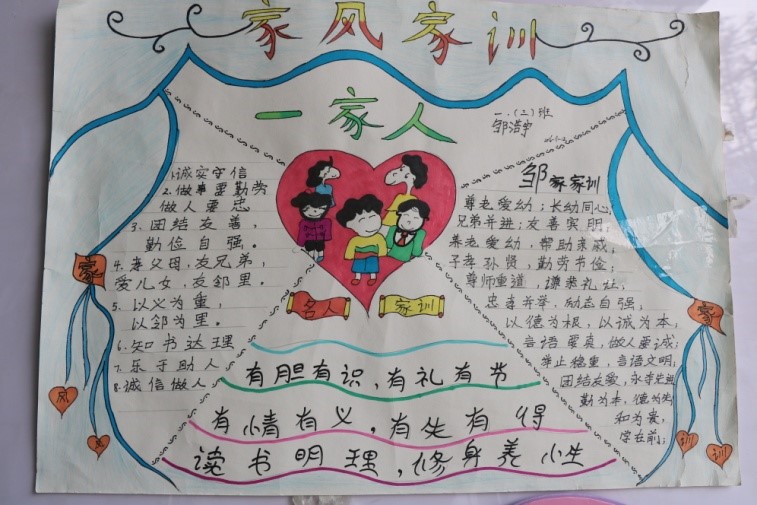 家风家训
一家人
一.(三)班
邹浩宇
1.诚实守信
2.做事要勤劳
做人要忠
3.团结友善，
勤俭自强。
4.孝父母，友兄弟，
爱儿女，友邻里。
5.以义为重，
以邻为里。
6.知书达理
7.乐于助人
8.诚信做人
邹家家训
尊老爱幼；长幼同心；
兄弟并进；友善宾朋；
养老爱幼，帮助亲戚；
子孝孙贤，勤劳节俭；
尊师重道，谦恭礼让；
忠孝并举，励志自强，
以德为根，以诚为本，
言语要真，做人要诚；
举止稳重，言语文明；
团结友爱，
勤为本，德为先
和为贵，
学在前；
名人
家训
有胆有识，有礼有节
有情有义，有失有得
读书明理，修身养小生
家
风
家
训
训